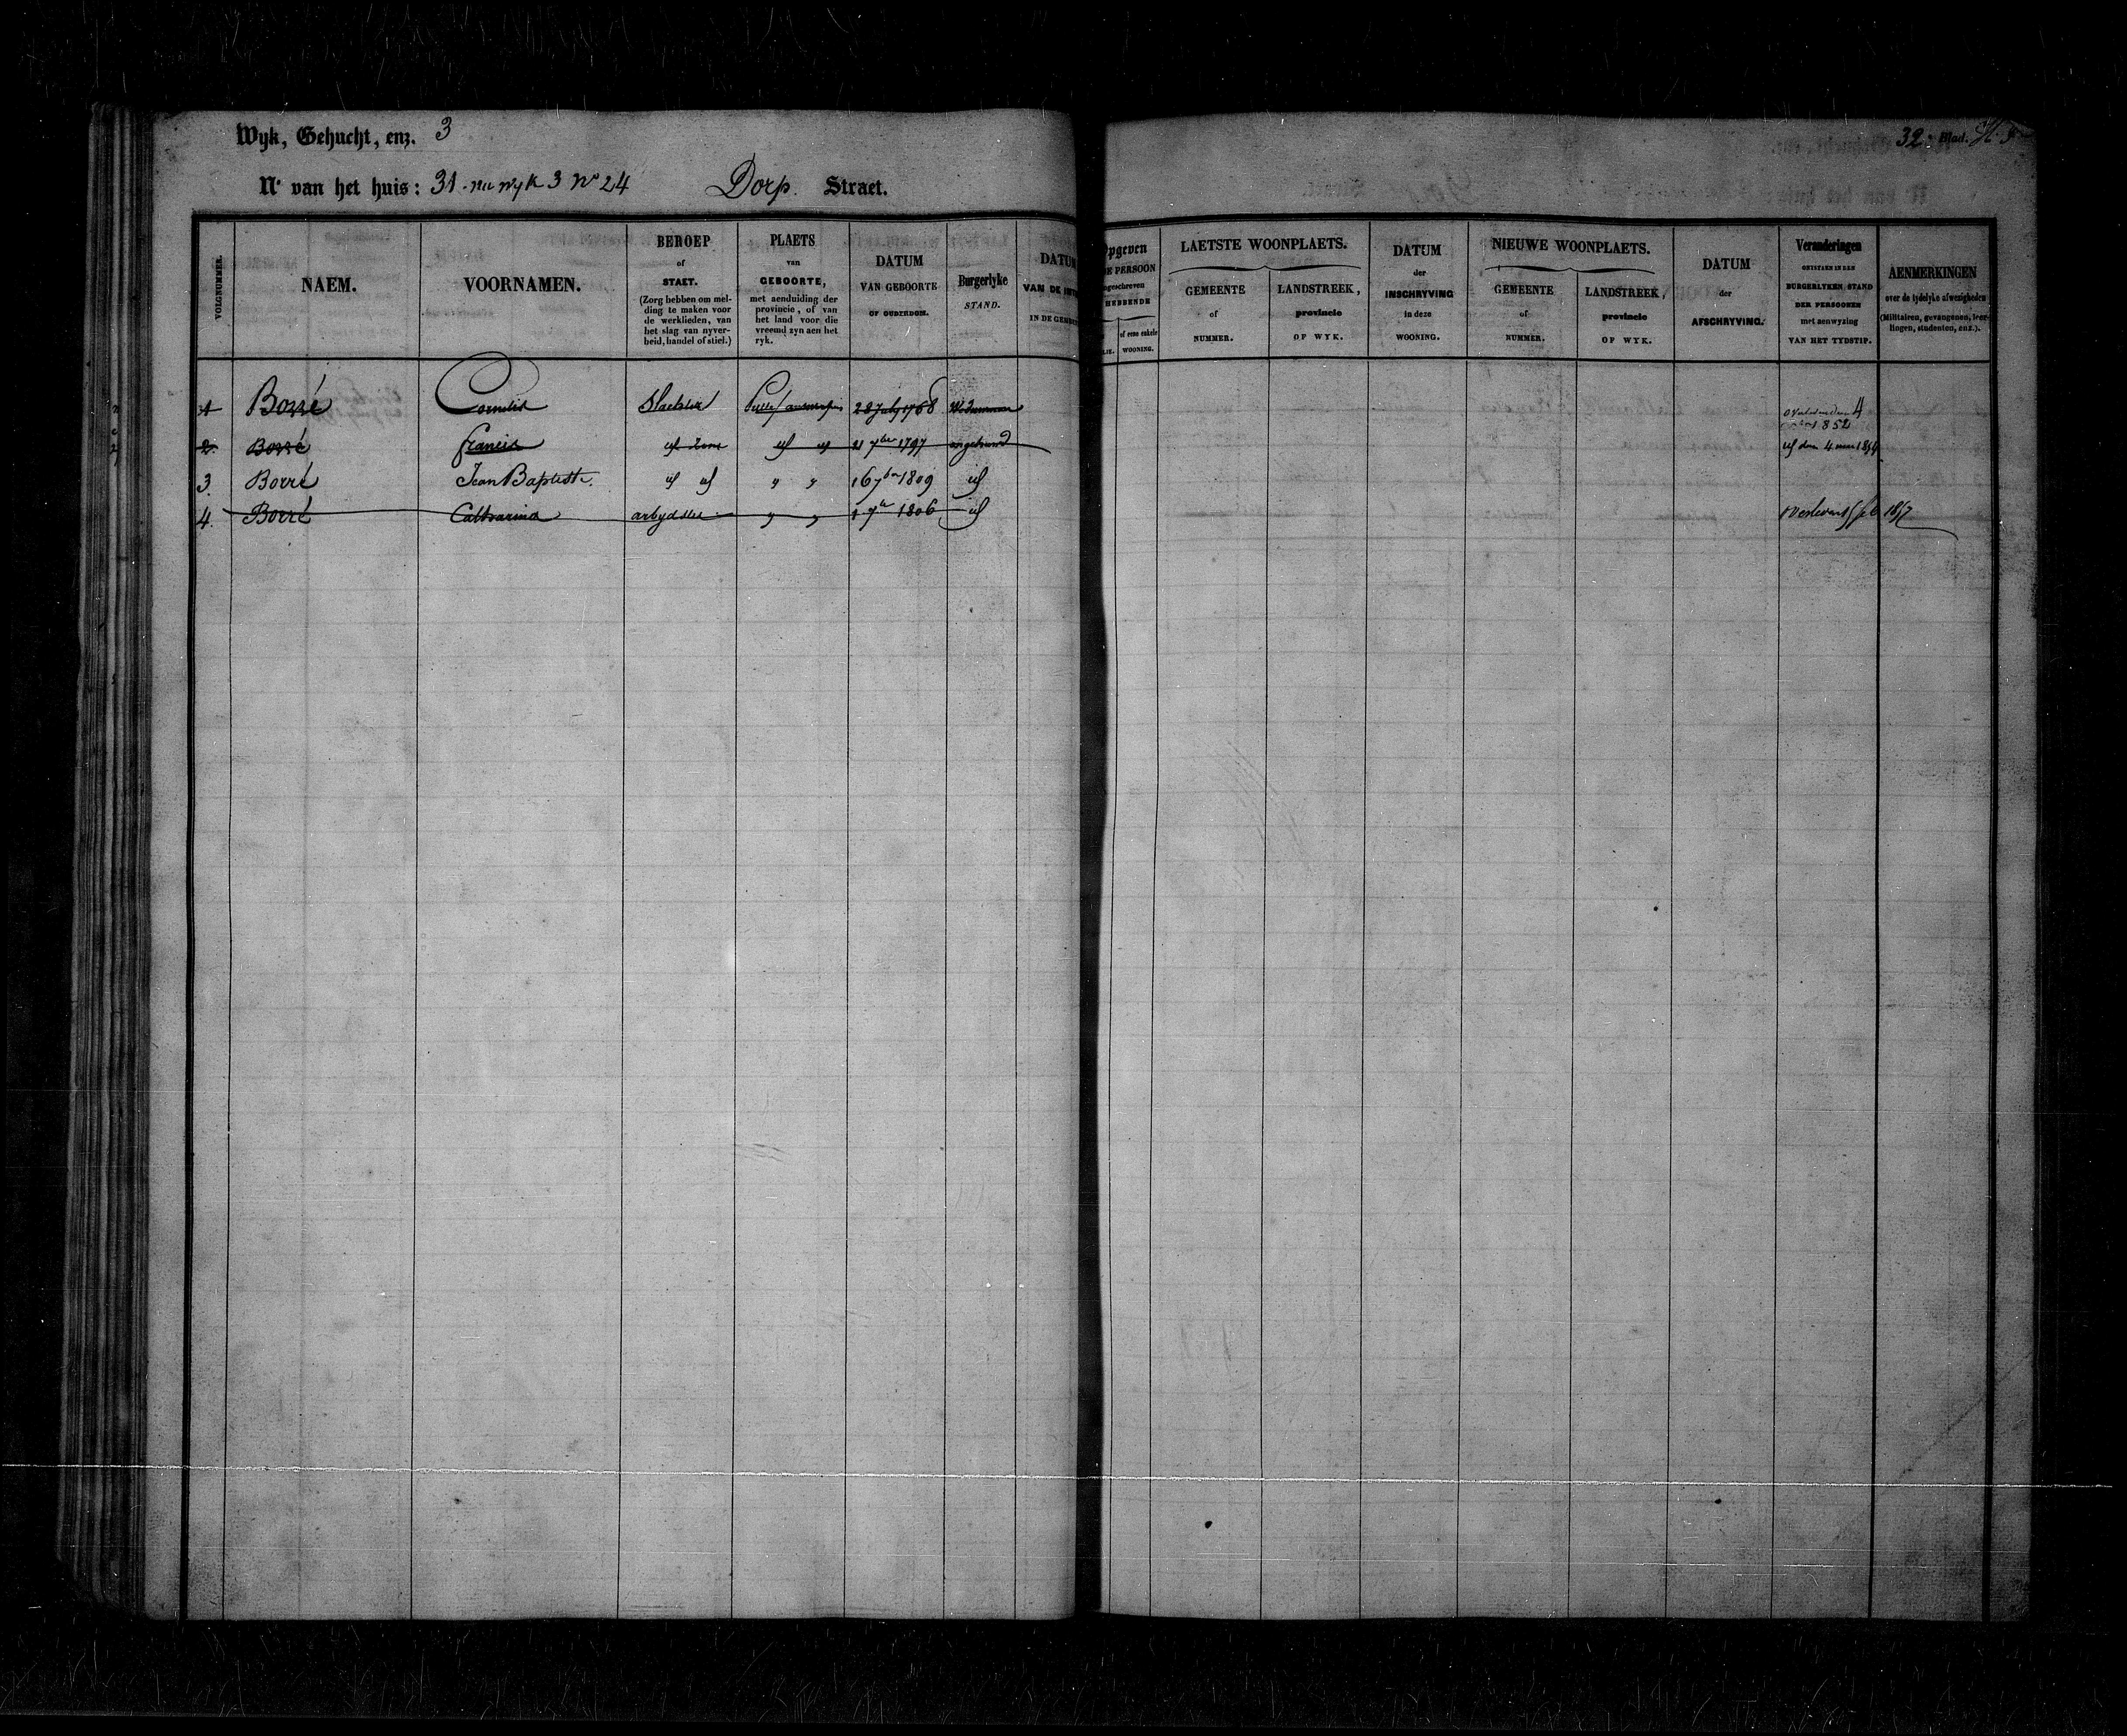 Wyk, Gehucht, enz. 3
32 Blad.
Nr van het huis: 31 - nu wyk 3 No 24 Dorp. Straet.
VOLGNUMMER.
NAEM.
VOORNAMEN.
BEROEP
of
STAET.
(Zorg hebben om mel-
ding te maken voor
de werklieden, van
het slag van nyver-
heid, handel of stiel.)
PLAETS
van
GEBOORTE,
met aenduiding der
provincie, of van
het land voor die
vreemd zyn aen het
ryk.
DATUM
VAN GEBOORTE
OF OUDERDOM.
Burgerlyke
STAND.
DATUM
VAN DE
IN DE
Opgeven
DE PERSOON
ngeschreven
HEBBENDE
of eene enkele
WOONING.
LAETSTE WOONPLAETS.
GEMEENTE
of
NUMMER.
LANDSTREEK,
provincie
OF WYK.
DATUM
der
INSCHRYVING
in deze
WOONING.
NIEUWE WOONPLAETS.
GEMEENTE
of
NUMMER.
LANDSTREEK,
provincie
OF WYK.
DATUM
der
AFSCHRYVING.
Veranderingen
ONTSTAEN IN DEN
BURGERLYKEN STAND
DER PERSOONEN
met aenwyzing
VAN HET TYDSTIP.
AENMERKINGEN
over de tydelyke afwezigheden
(Militairen, gevangenen, leer-
lingen, studenten, enz.).
1 Borré Cornelis Slachter Pulle 28 July 1768 Weduwnaar overleden 4
1852
2 Borré Francis id zone id id 21 7ber 1797 ongehuwd id den 4
3. Borré Jean Baptiste. id id " " 16 7ber 1809 id
4. Borré Catharina arbydster " " 1 7ber 1806 id feb 1857